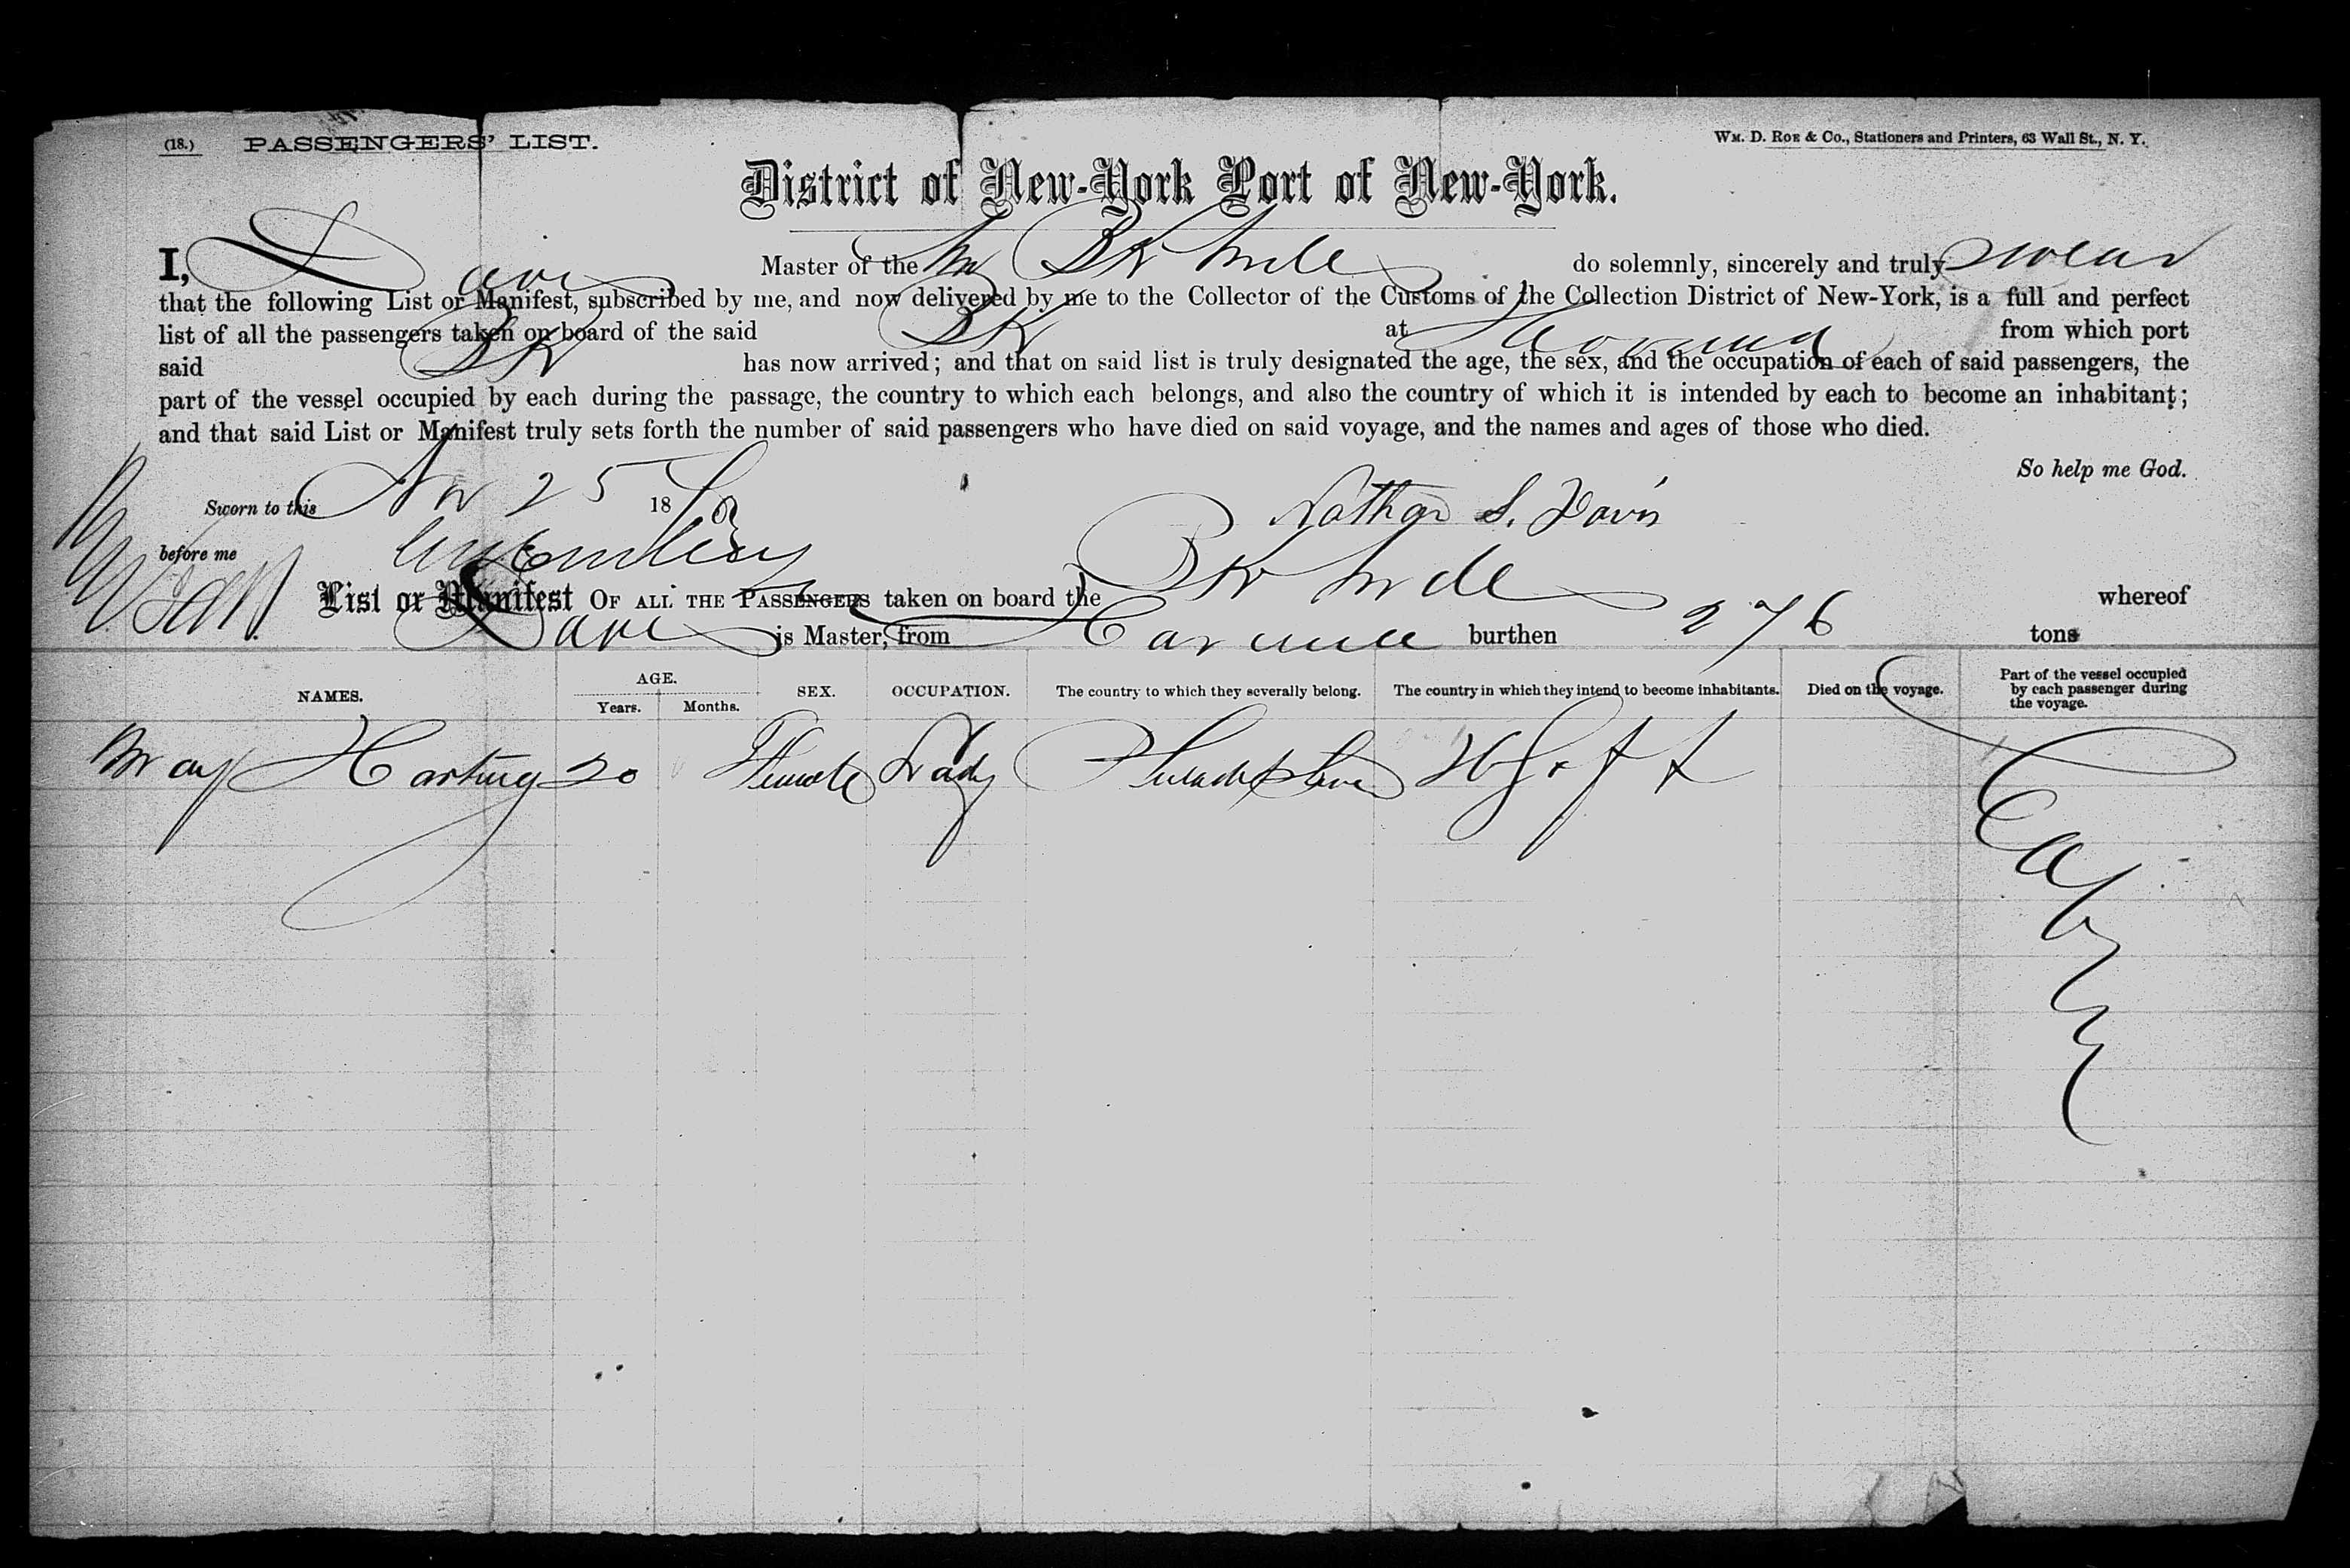 (18.) PASSENGERS' LIST.
WM. D. ROE & CO., Stationers and Printers, 63 Wall St., N. Y.
District of New-York Port of New-York.
I, Master of the Bk do solemnly, sincerely and truly swear
that the following List or Manifest, subscribed by me, and now delivered by me to the Collector of the Customs of the Collection District of New-York, is a full and perfect
list of all the passengers taken on board of the said Bk at from which port
said Bk has now arrived; and that on said list is truly designated the age, the sex, and the occupation of each of said passengers, the
part of the vessel occupied by each during the passage, the country to which each belongs, and also the country of which it is intended by each to become an inhabitant;
and that said List or Manifest truly sets forth the number of said passengers who have died on said voyage, and the names and ages of those who died.
So help me God.
Sworn to this Nov 25 18
Nathan S. Davis
before me
List or Manifest OF ALL THE PASSENGERS taken on board the Bk whereof
is Master, from burthen 276 tons
NAMES. AGE. Years. Months. SEX. OCCUPATION. The country to which they severally belong. The country in which they intend to become inhabitants. Died on the voyage. Part of the vessel occupied by each passenger during the voyage.
May 20 Female Lady Philadelphia